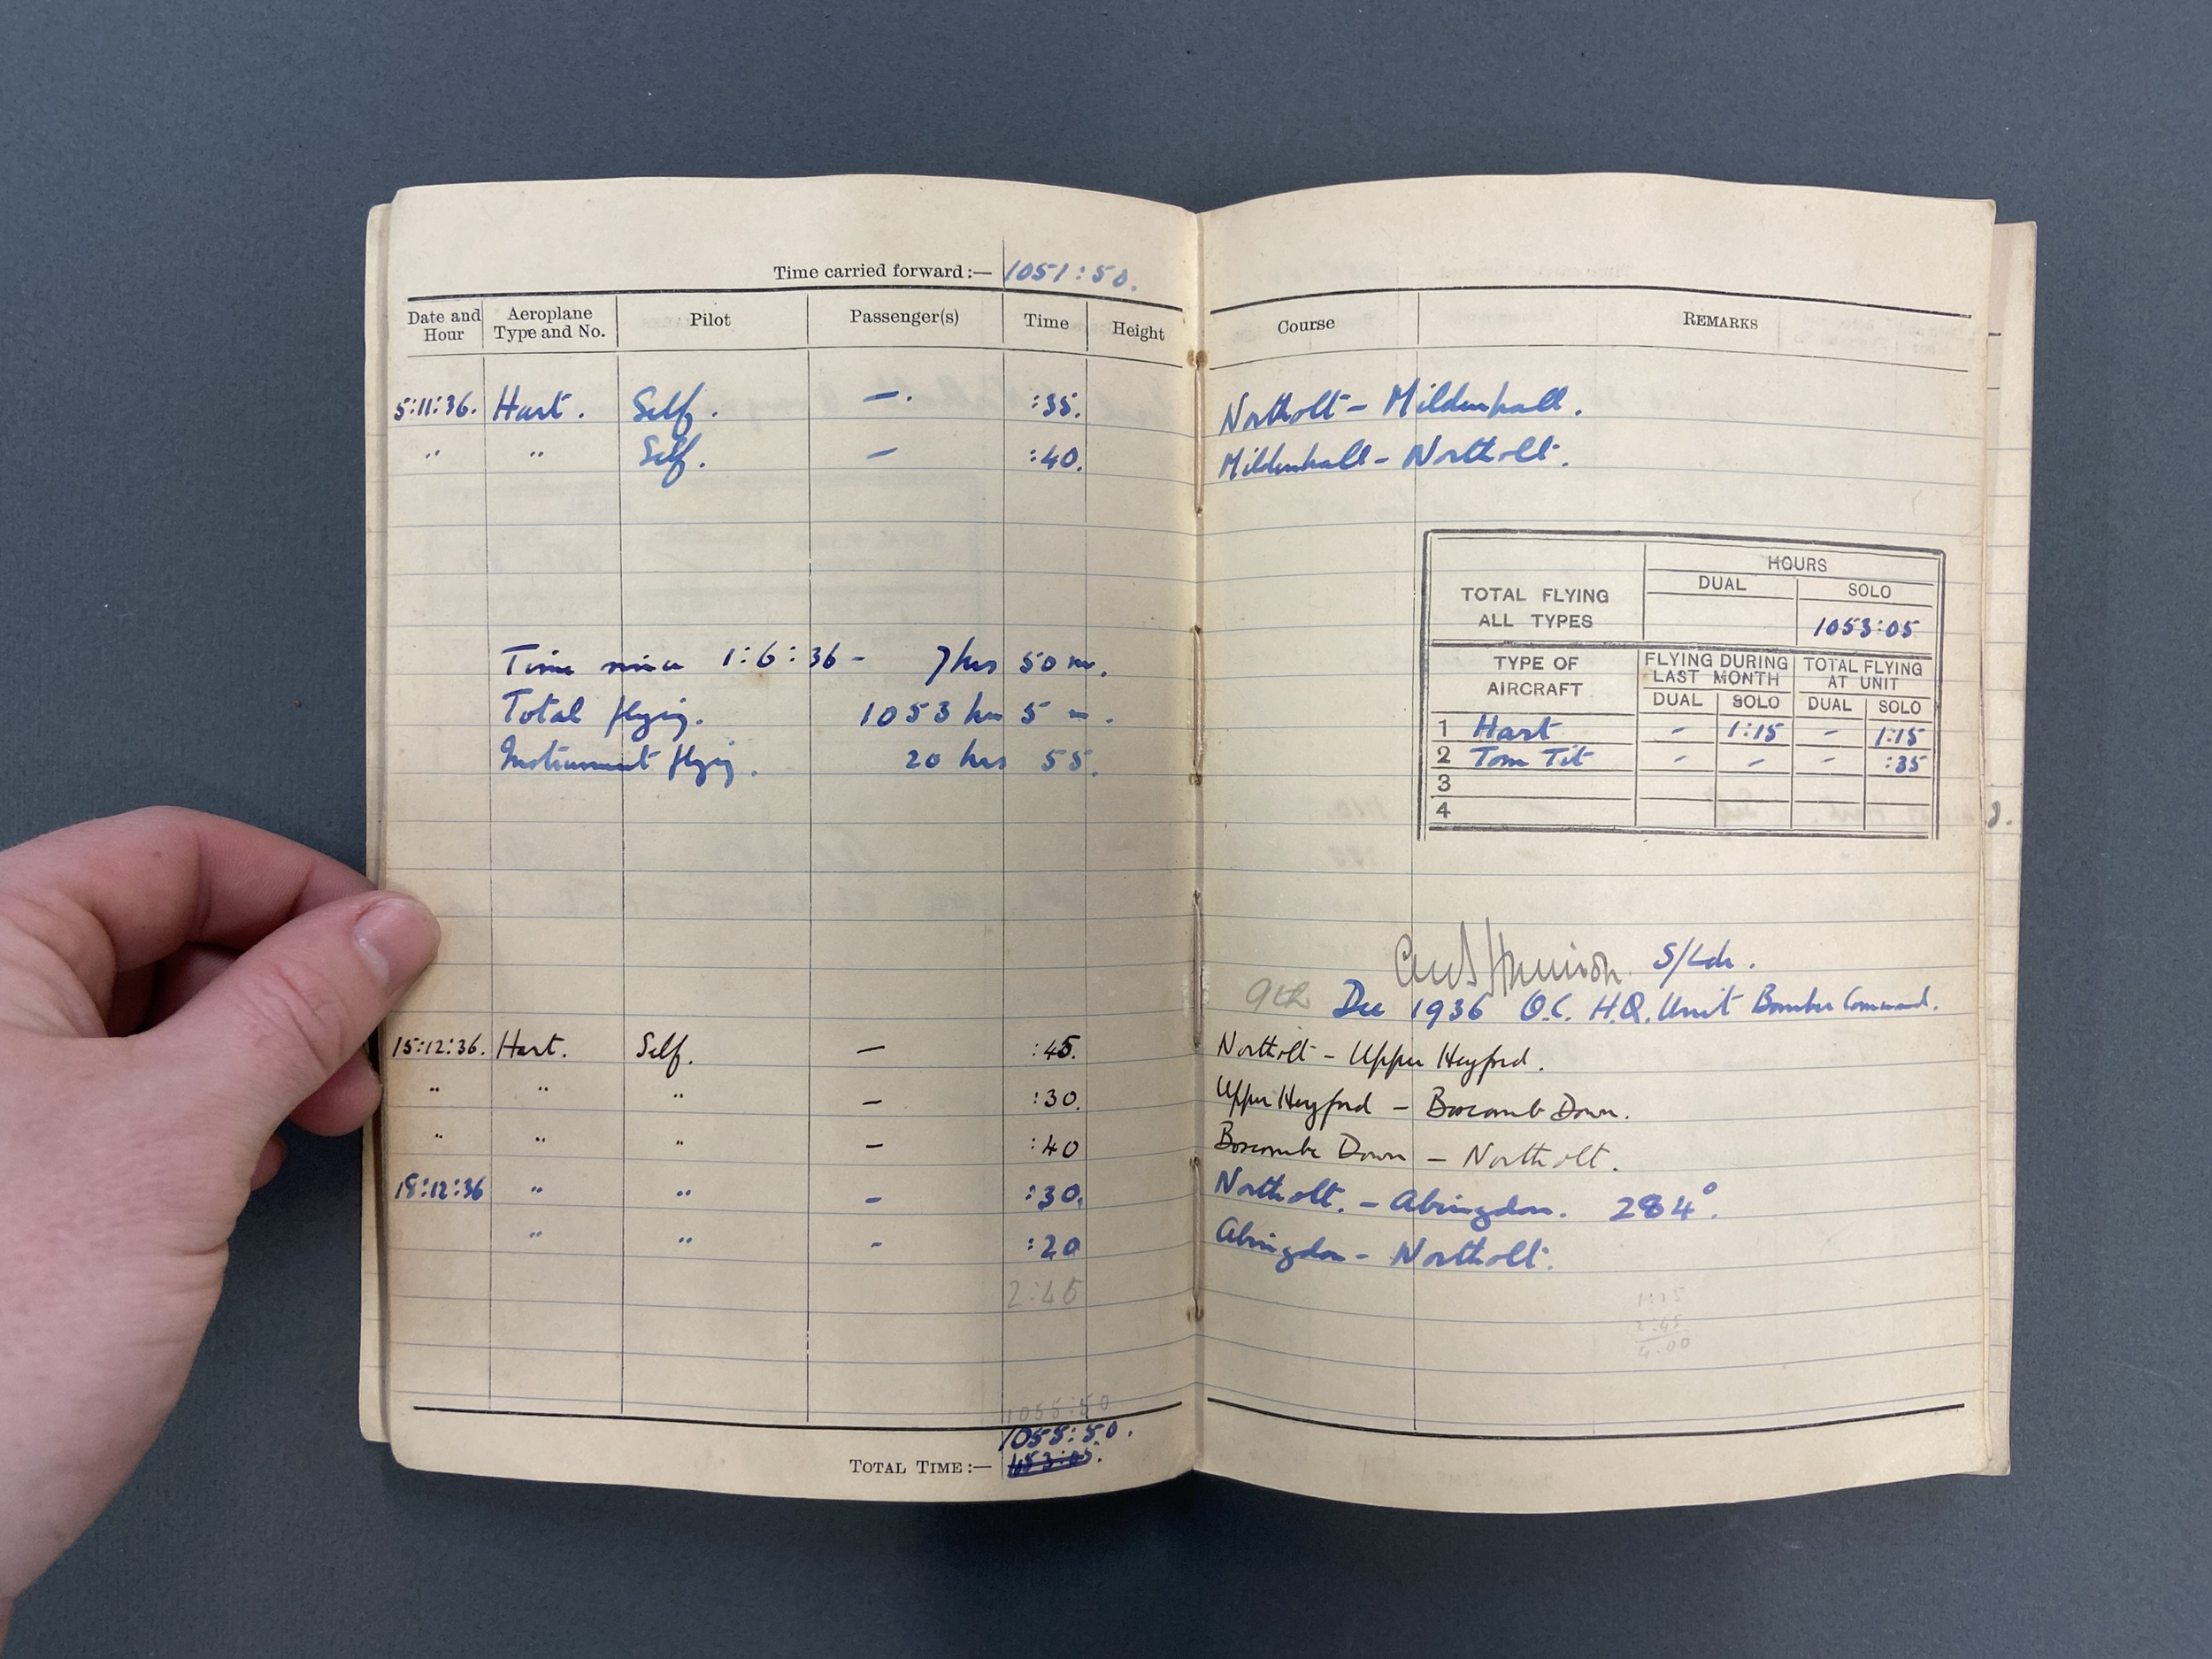 Time carried forward:— 1051:50.
Date and Hour Aeroplane Type and No. Pilot Passenger(s) Time Height Course REMARKS
5:11:36. Hart. Self. —. :35. Northolt - Mildenhall.
" " Self. — :40. Mildenhall - Northolt.
HOURS
TOTAL FLYING ALL TYPES DUAL SOLO
1053:05
TYPE OF AIRCRAFT FLYING DURING LAST MONTH TOTAL FLYING AT UNIT
DUAL SOLO DUAL SOLO
1 Hart - 1:15 - 1:15
2 Tom Tit - - - :35
3
4
Time since 1:6:36 - 7 hrs 50 m.
Total flying. 1053 hrs 5 m.
Instrument flying. 20 hrs 55.
S/Ldr.
9th Dec 1936 O.C. H.Q. Unit Bomber Command.
15:12:36. Hart. Self. — :45. Northolt - Upper Heyford.
" " " — :30. Upper Heyford - Boscomb Down.
" " " — :40 Boscombe Down - Northolt.
18:12:36 " " - :30. Northolt. - Abingdon. 284°.
" " - :20 Abingdon - Northolt.
2:45
1:15
2:45
4:00
1055:50
1055:50.
TOTAL TIME:— 1053:05.